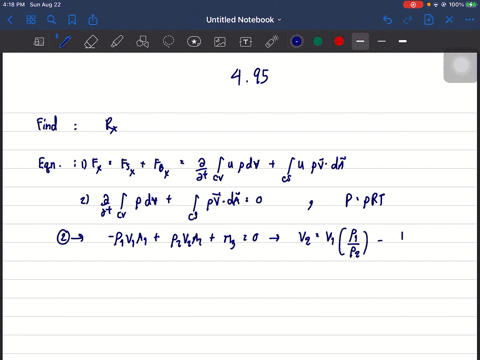 4:18 PM Sun Aug 22
100%
Untitled Notebook
4.95
Find : Rx
Eqn. : 1) Fx = Fsx + FBx = ∂/∂t ∫cv u ρ d∀ + ∫cs u ρv⃗ · dA⃗
2) ∂/∂t ∫cv ρ d∀ + ∫cs ρv⃗ · dA⃗ = 0 , P = ρRT
② → -ρ1V1A1 + ρ2V2A2 + ṁ3 = 0 → V2 = V1 (ρ1/ρ2) -